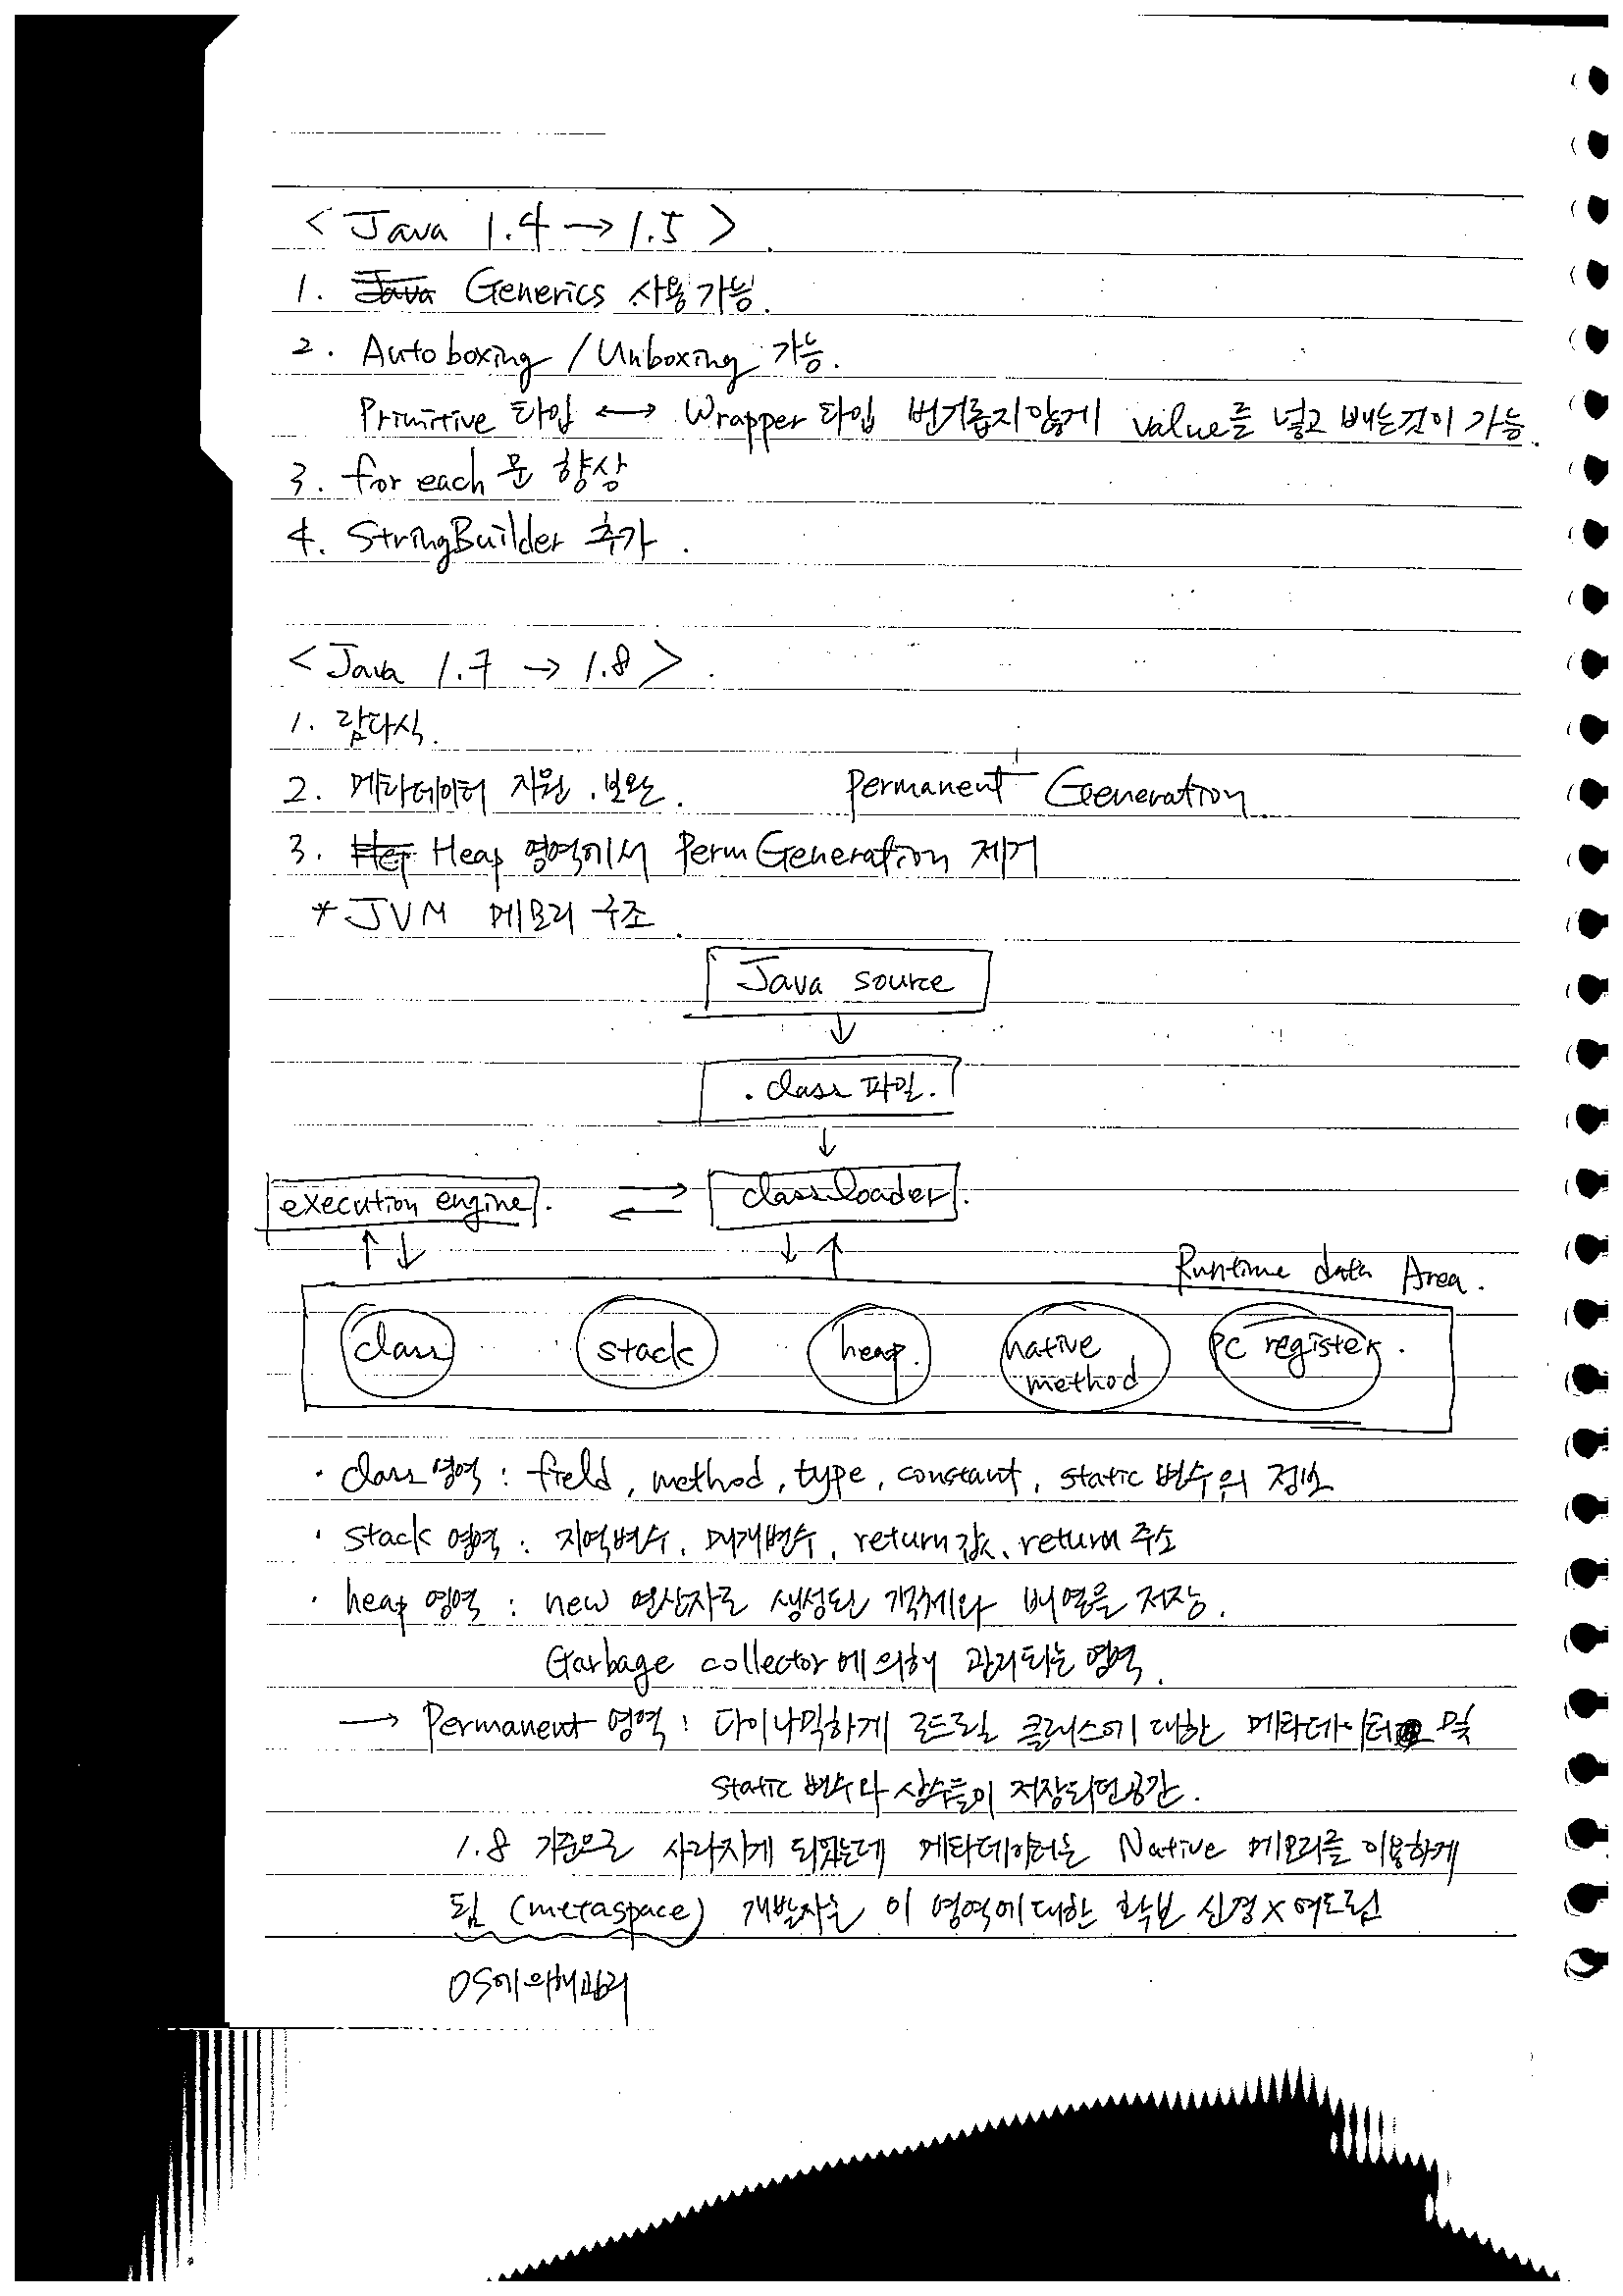 < Java 1.4 → 1.5 > .
1. Java Generics 사용가능.
2. Autoboxing / Unboxing 가능.
Primitive 타입 ←→ Wrapper 타입 번거롭지않게 value를 넣고 빼는것이 가능.
3. for each 문 향상
4. StringBuilder 추가.
< Java 1.7 → 1.8 > .
1. 람다식.
2. 메타데이터 지원. 보완. Permanent Generation.
3. Hep Heap 영역에서 Perm Generation 제거
* JVM 메모리 구조.
Java source
↓
.class 파일.
↓
execution engine. ⇄ class loader.
↑↓ ↓↑
Runtime data Area.
class stack heap. native method PC register.
· class 영역 : field, method, type, constant, static 변수의 정보
· stack 영역 : 지역변수, 매개변수, return 값, return 주소
· heap 영역 : new 연산자로 생성된 객체와 배열을 저장.
Garbage collector에 의해 관리되는 영역.
→ Permanent 영역 : 다이나믹하게 로드될 클래스에 대한 메타데이터 및
static 변수와 상수들이 저장되던공간.
1.8 기준으로 사라지게 되었는데 메타데이터는 Native 메모리를 이용하게
됨 (metaspace) 개발자는 이 영역에 대한 확보 신경 X 여도됨
OS에의해관리